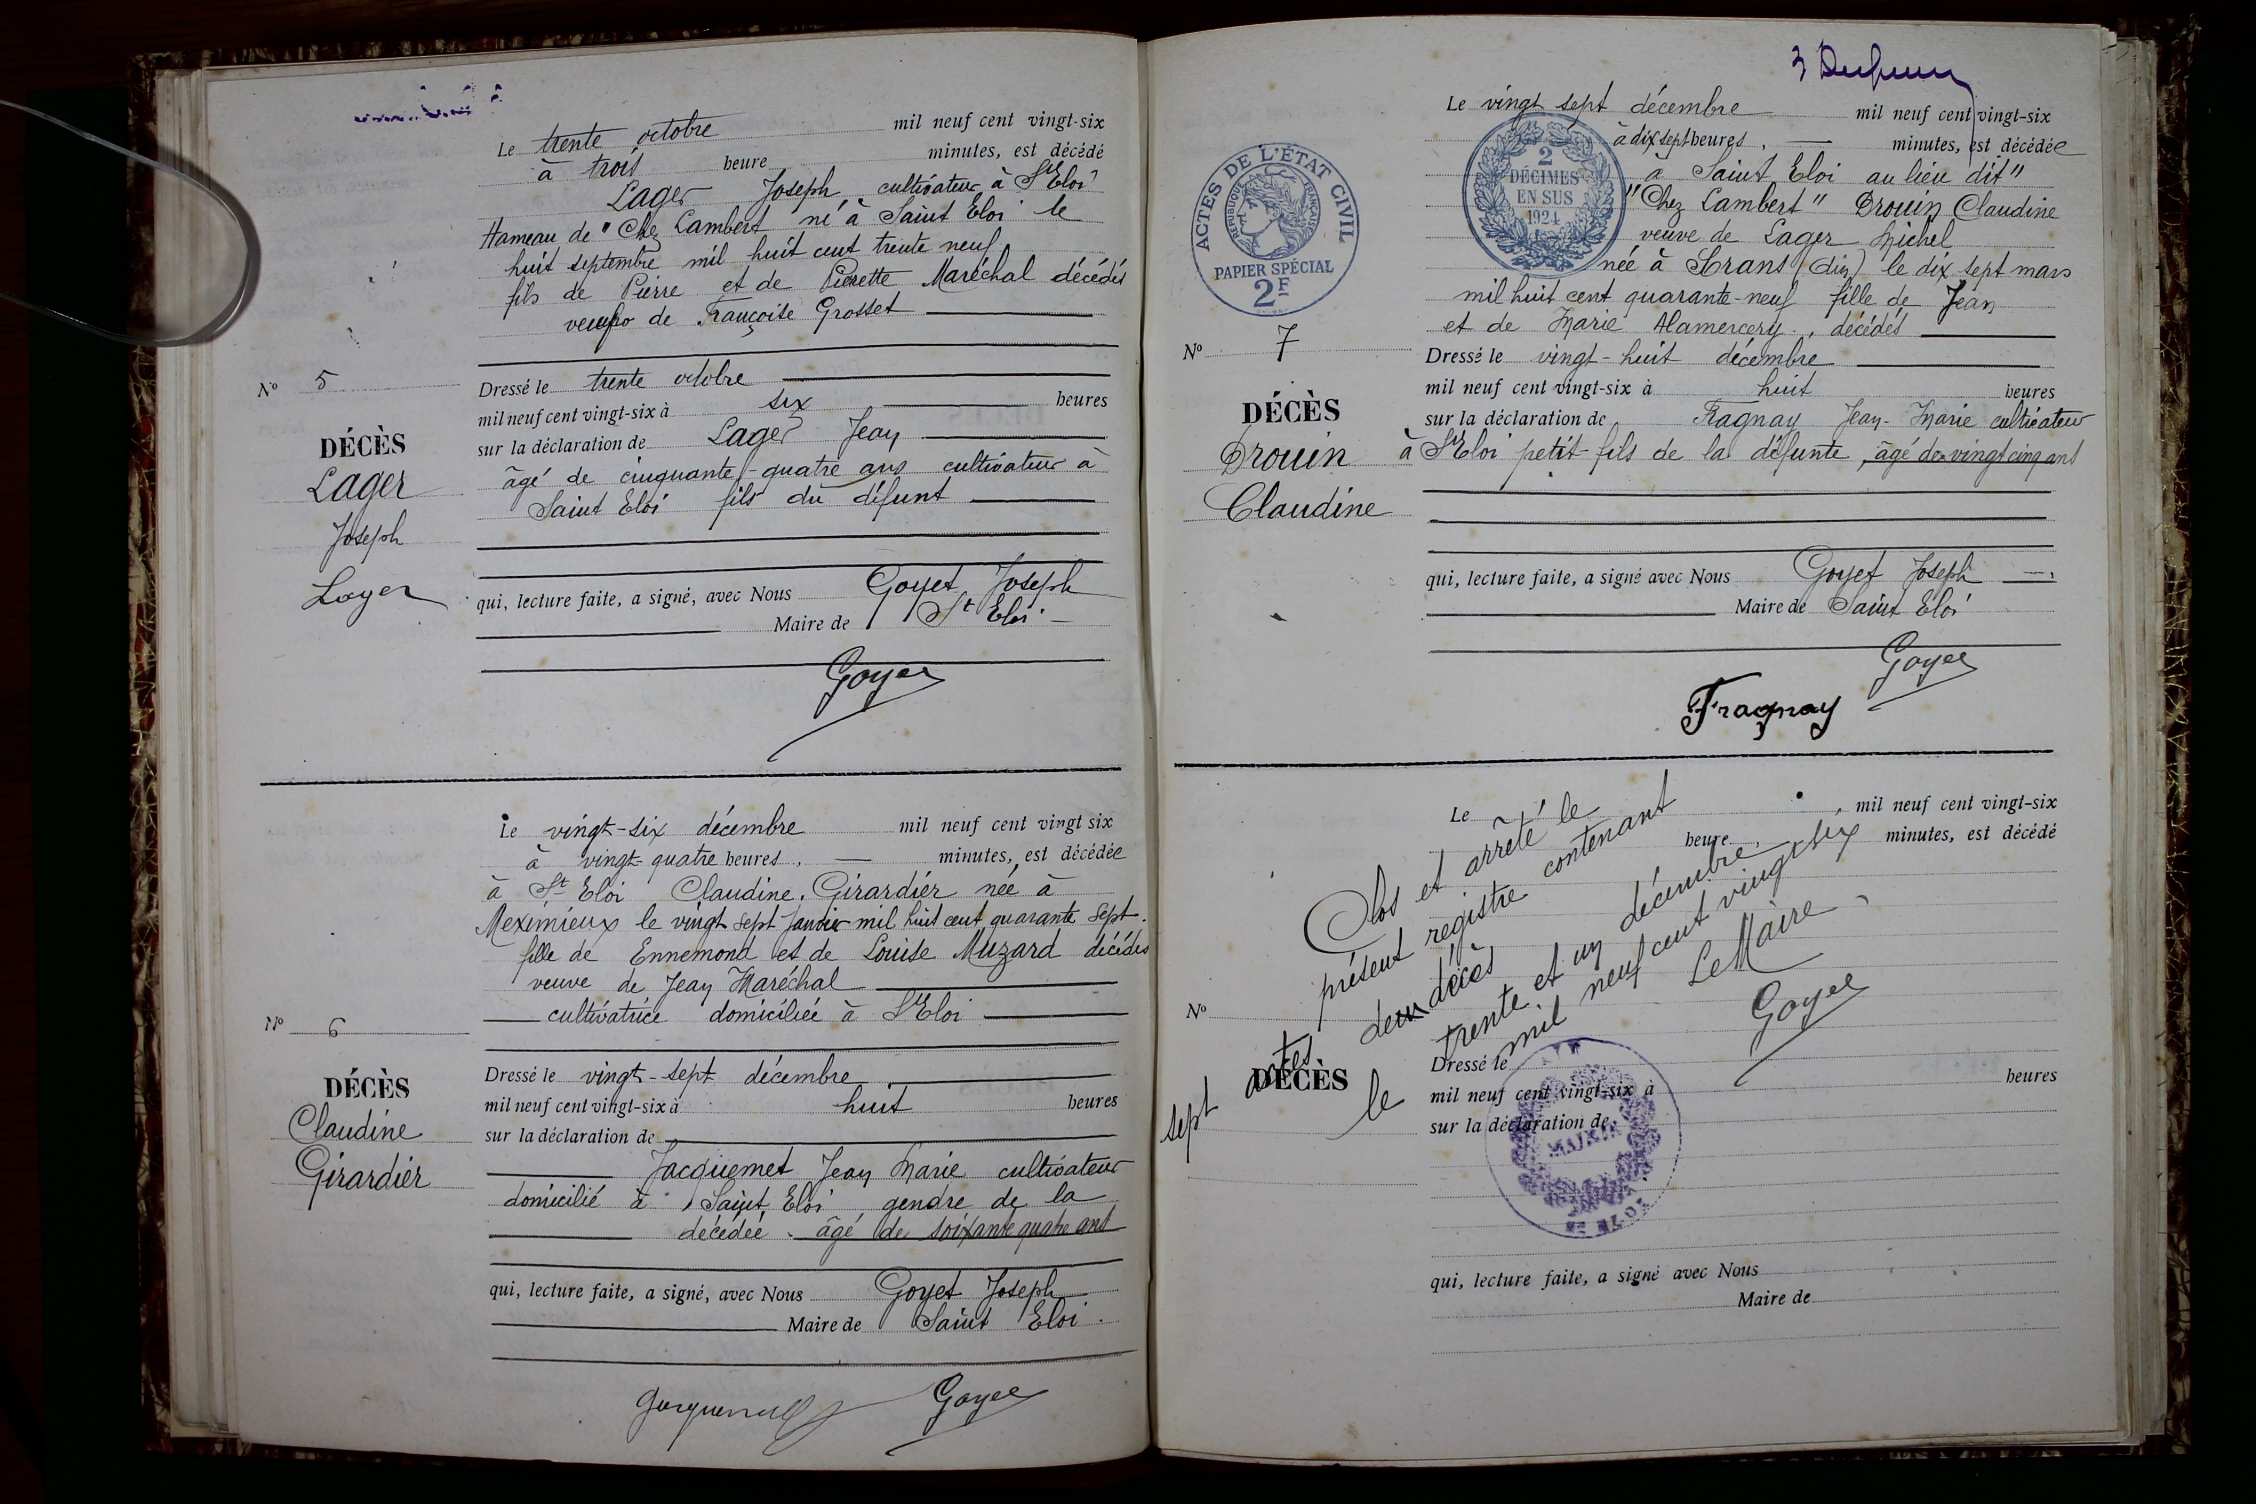 Le trente octobre mil neuf cent vingt-six
à trois heure minutes, est décédé
Lager Joseph cultivateur à St Eloi
Hameau de "Chez Lambert né à Saint Eloi le
huit septembre mil huit cent trente neuf
fils de Pierre et de Pierette Maréchal décédés
veuf de Françoise Grosset
No 5
DÉCÈS
Lager
Joseph
Lager
Dressé le trente octobre
mil neuf cent vingt-six à six heures
sur la déclaration de Lager Jean
âgé de cinquante-quatre ans cultivateur à
Saint Eloi fils du défunt
qui, lecture faite, a signé, avec Nous Goyet Joseph
Maire de St Eloi
Goyet
Le vingt-six décembre mil neuf cent vingt six
à vingt-quatre heures. minutes, est décédée
à St Eloi Claudine Girardier née à
Meximieux le vingt sept janvier mil huit cent quarante sept.
fille de Ennemond et de Louise Muzard décédés
veuve de Jean Maréchal
cultivatrice domiciliée à St Eloi
No 6
DÉCÈS
Claudine
Girardier
Dressé le vingt-sept décembre
mil neuf cent vingt-six à huit heures
sur la déclaration de
Jacquemet Jean Marie cultivateur
domicilié à Saint Eloi gendre de la
décédée. âgé de soixante quatre ans
qui, lecture faite, a signé, avec Nous Goyet Joseph
Maire de Saint Eloi.
Goyet
Le vingt sept décembre mil neuf cent vingt-six
à dix sept heures. minutes, est décédée
à Saint Eloi au lieu dit "
"Chez Lambert" Drouin Claudine
veuve de Lager Michel
née à Trans (Ain) le dix sept mars
mil huit cent quarante-neuf fille de Jean
et de Marie Alamercery, décédés
ACTES DE L'ÉTAT CIVIL
RÉPUBLIQUE FRANÇAISE
PAPIER SPÉCIAL
2F
2
DÉCIMES
EN SUS
1924
No 7
DÉCÈS
Drouin
Claudine
Dressé le vingt-huit décembre
mil neuf cent vingt-six à huit heures
sur la déclaration de Fragnay Jean-Marie cultivateur
à St Eloi petit-fils de la défunte, âgé de vingt cinq ans
qui, lecture faite, a signé avec Nous Goyet Joseph
Maire de Saint Eloi
Goyet
Fragnay
Le mil neuf cent vingt-six
heure minutes, est décédé
No
DÉCÈS
Dressé le
mil neuf cent vingt-six à heures
sur la déclaration de
qui, lecture faite, a signé avec Nous
Maire de
Clos et arrêté le
présent registre contenant
sept actes de décès
le trente et un décembre
mil neuf cent vingt six
Le Maire,
Goyet
MAIRIE